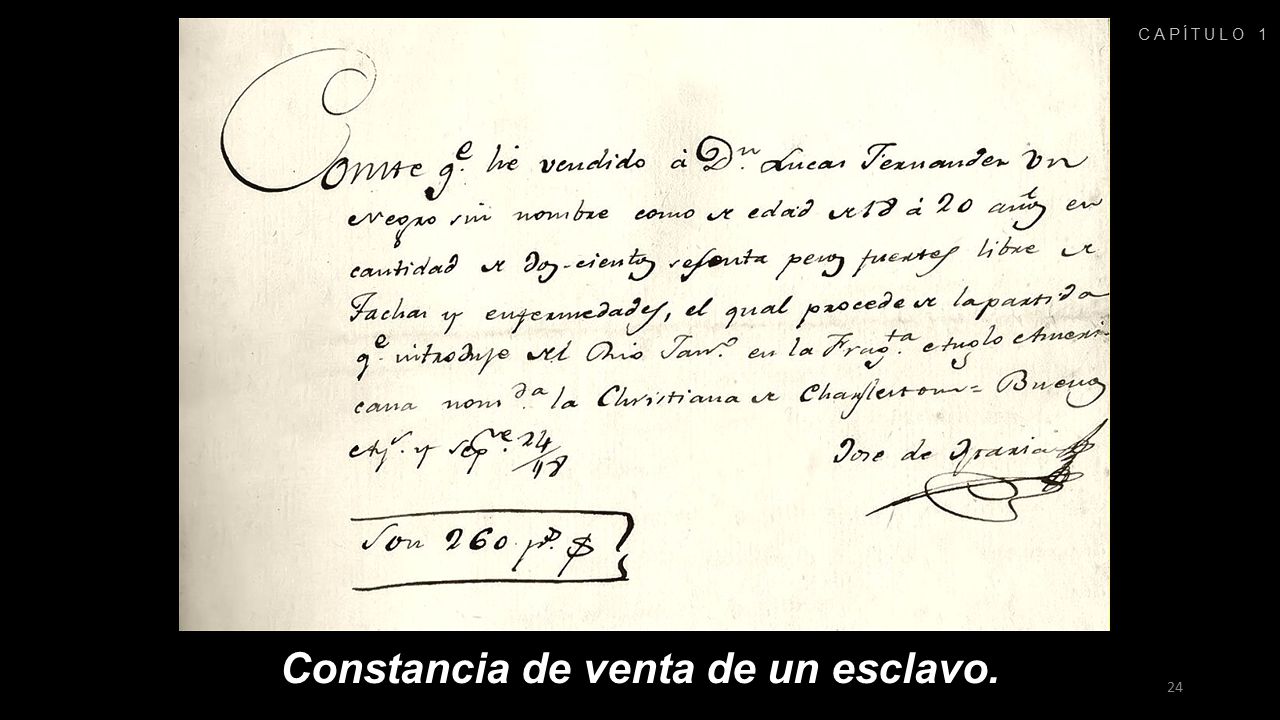 CAPÍTULO 1
Conste qe. he vendido á Dn. Lucas Fernandez Un
Negro sin nombre como de edad de 18 á 20 años en
cantidad de dos-cientos sesenta pesos fuertes libre de
Tachas y enfermedades, el qual procede de la partida
qe. introduje del Rio Janro. en la Fragta. Anglo Ameri-
cana nomda. la Christiana de Charlestown= Buenos
Ays. y Sepre. 24
José de
Son 260 ps. $
Constancia de venta de un esclavo.
24